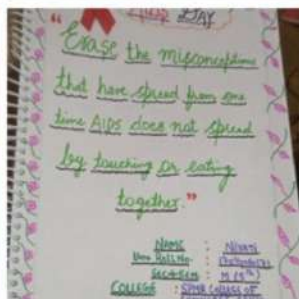 AIDS DAY
"Erase the misconceptions
that have spread from one
time AIDS does not spread
by touching or eating
together."
NAME :
Uni Roll No. :
SECTION : M (5th)
COLLEGE : SPMR COLLEGE OF